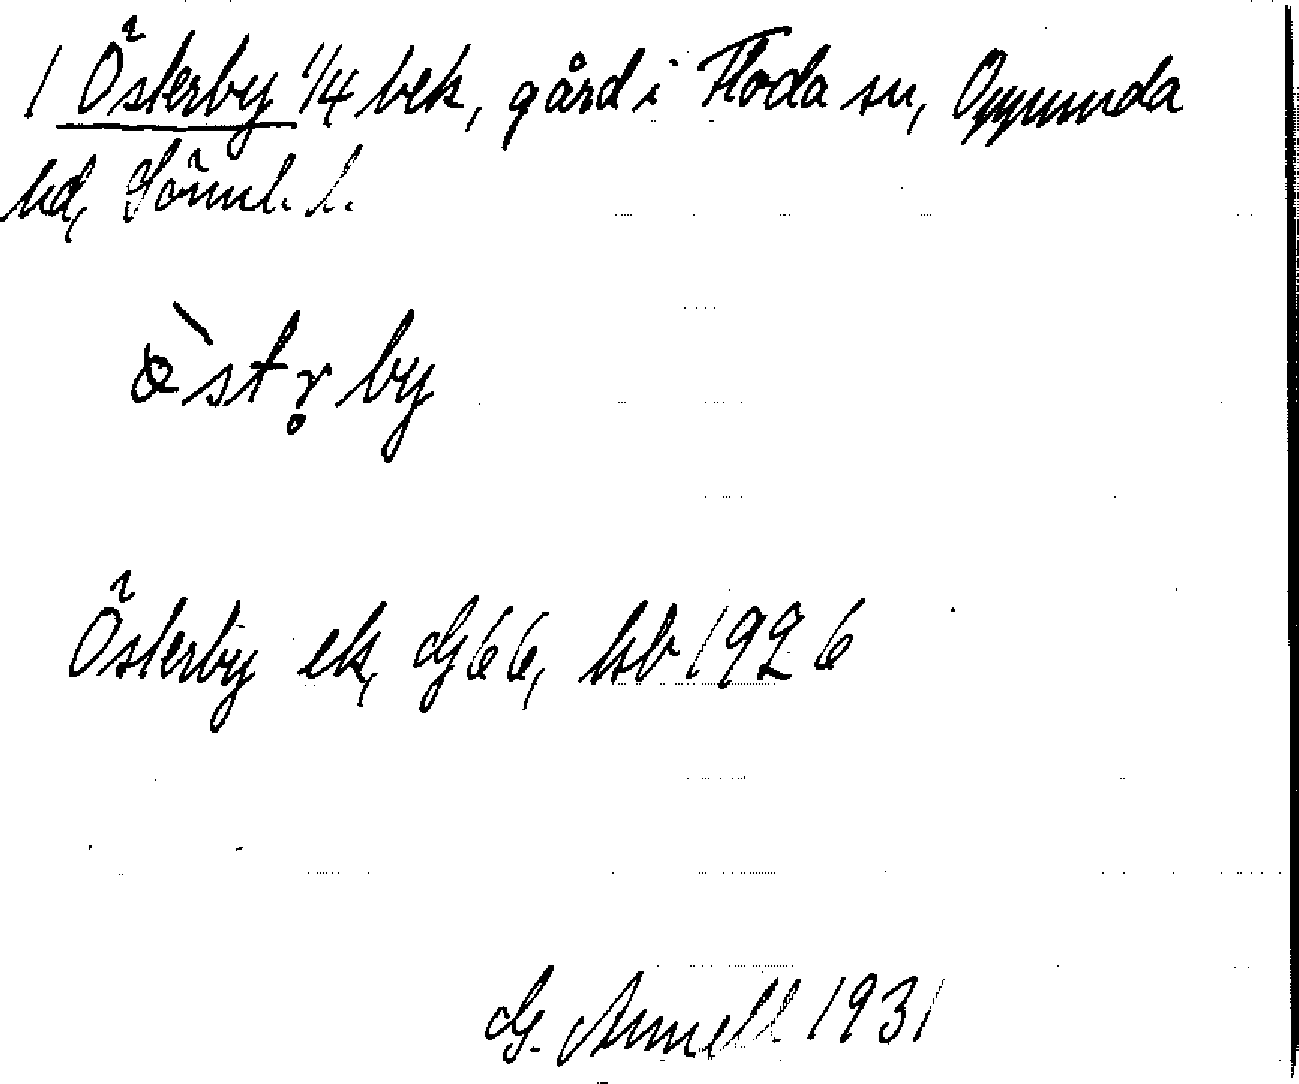 1 Österby 1/4 bek, gård i Floda sn, Oppunda
hd, Söml. l.
östr̥by
Österby ek, G66, hb 1926
G. Annell 1931